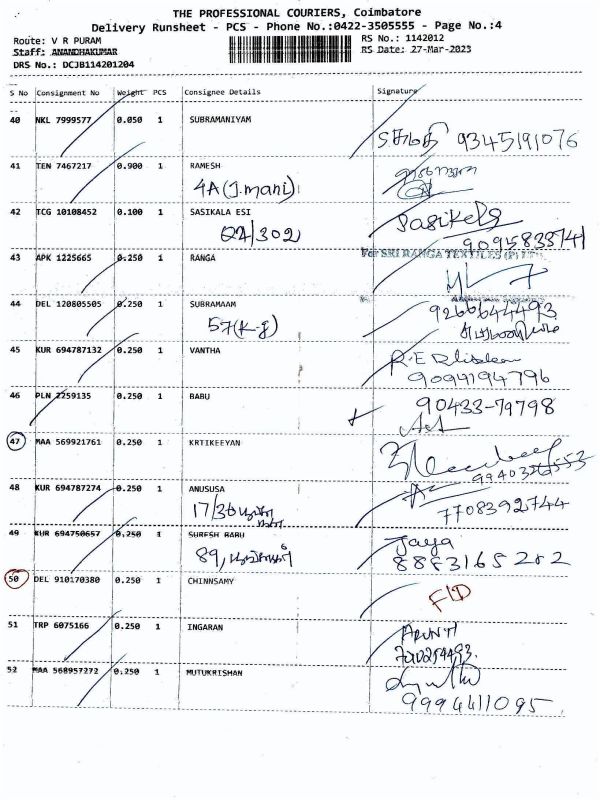 THE PROFESSIONAL COURIERS, Coimbatore
Delivery Runsheet - PCS - Phone No.:0422-3505555 - Page No.:4
Route: V R PURAM
RS No.: 1142012
Staff: ANANDHAKUMAR
RS Date: 27-Mar-2023
DRS No.: DCJB114201204
S No Consignment No Weight PCS Consignee Details Signature
40 NKL 7999577 0.050 1 SUBRAMANIYAM
9345191076
41 TEN 7467217 0.900 1 RAMESH
4A (J.mani)
42 TCG 10108452 0.100 1 SASIKALA ESI
302
9095838741
43 APK 1225665 0.250 1 RANGA
For SRI RANGA TEXTILES (P) LTD
44 DEL 120805505 0.250 1 SUBRAMAAM
57(K-J)
9266644493
45 KUR 694787132 0.250 1 VANTHA
9094194796
46 PLN 2259135 0.250 1 BABU
90433-79798
47 MAA 569921761 0.250 1 KRTIKEEYAN
48 KUR 694787274 0.250 1 ANUSUSA
17/36
7708392744
49 KUR 694750657 0.250 1 SURESH BABU
89,
Jaya
8883165282
50 DEL 910170380 0.250 1 CHINNSAMY
51 TRP 6075166 0.250 1 INGARAN
52 MAA 568957272 0.250 1 MUTUKRISHAN
9994411095